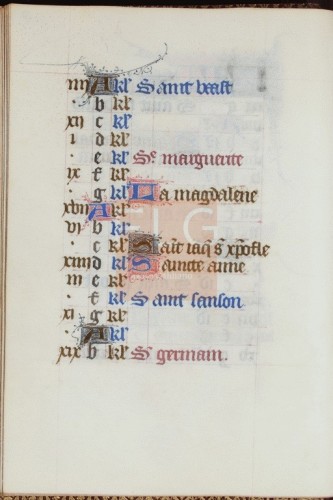 iiij A kl' Saint vaast
b kl'
xij c kl'
i d kl'
e kl' Se marguerite
ix f kl'
g kl' La magdalene
xvij A kl'
vi b kl'
c kl' Sait iaqs xpofle
xiiij d kl' Saincte anne
iii e kl'
f kl' Saint sanson
xi g kl'
A kl'
xix b kl' S germain.